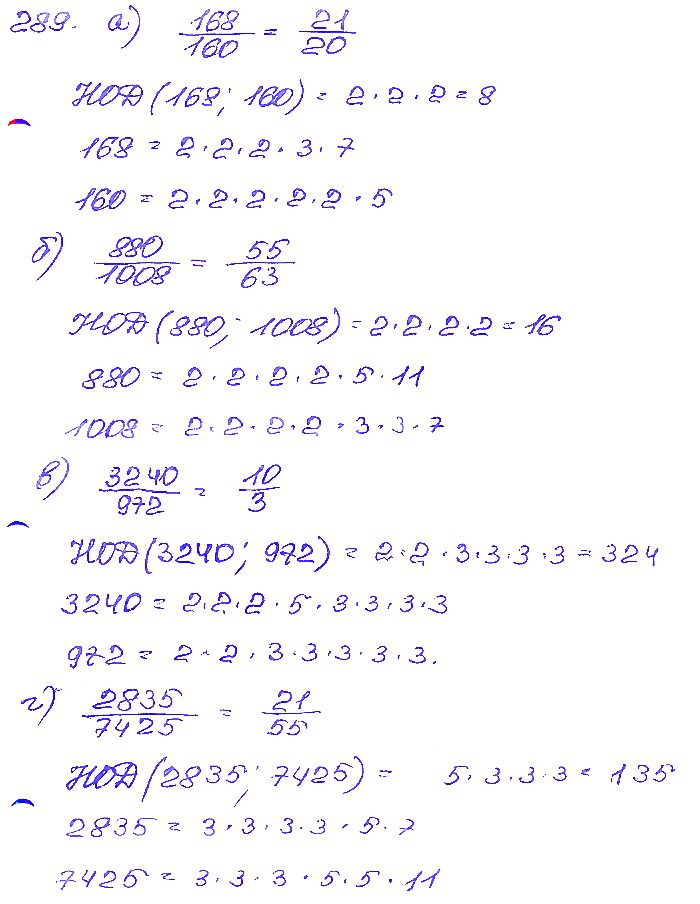 289. а) 168/160 = 21/20
НОД (168; 160) = 2 · 2 · 2 = 8
168 = 2 · 2 · 2 · 3 · 7
160 = 2 · 2 · 2 · 2 · 2 · 5
б) 880/1008 = 55/63
НОД (880; 1008) = 2 · 2 · 2 · 2 = 16
880 = 2 · 2 · 2 · 2 · 5 · 11
1008 = 2 · 2 · 2 · 2 · 3 · 3 · 7
в) 3240/972 = 10/3
НОД (3240; 972) = 2 · 2 · 3 · 3 · 3 · 3 = 324
3240 = 2 · 2 · 2 · 5 · 3 · 3 · 3 · 3
972 = 2 · 2 · 3 · 3 · 3 · 3 · 3.
г) 2835/7425 = 21/55
НОД (2835; 7425) = 5 · 3 · 3 · 3 = 135
2835 = 3 · 3 · 3 · 3 · 5 · 7
7425 = 3 · 3 · 3 · 5 · 5 · 11